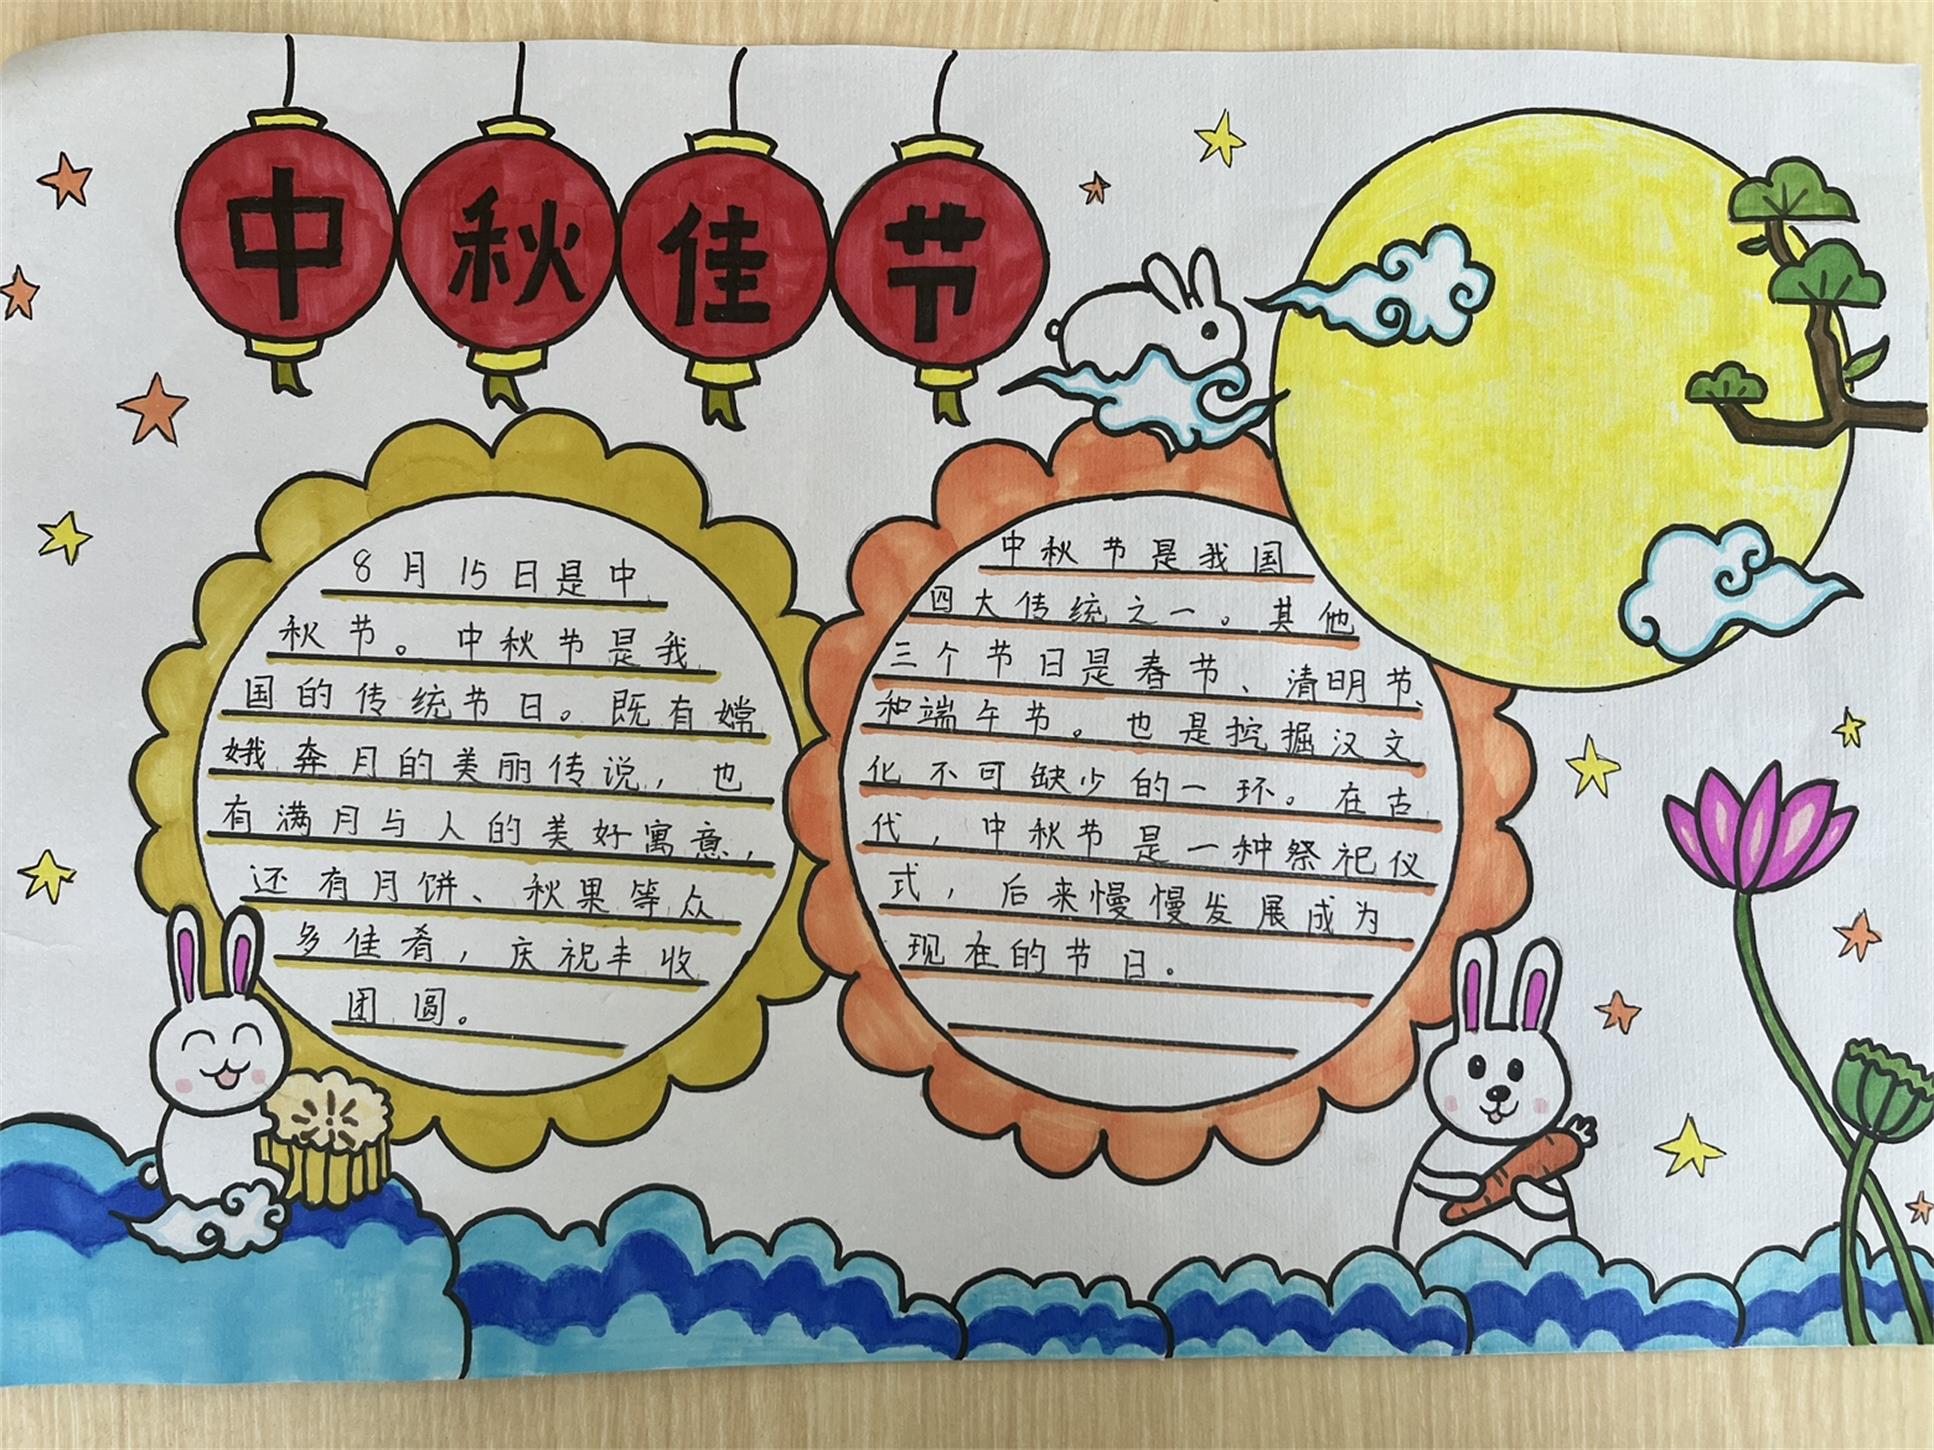 中秋佳节
8月15日是中
秋节。中秋节是我
国的传统节日。既有嫦
娥奔月的美丽传说，也
有满月与人的美好寓意，
还有月饼、秋果等众
多佳肴，庆祝丰收
团圆。
中秋节是我国
四大传统之一。其他
三个节日是春节、清明节、
和端午节。也是挖掘汉文
化不可缺少的一环。在古
代，中秋节是一种祭祀仪
式，后来慢慢发展成为
现在的节日。